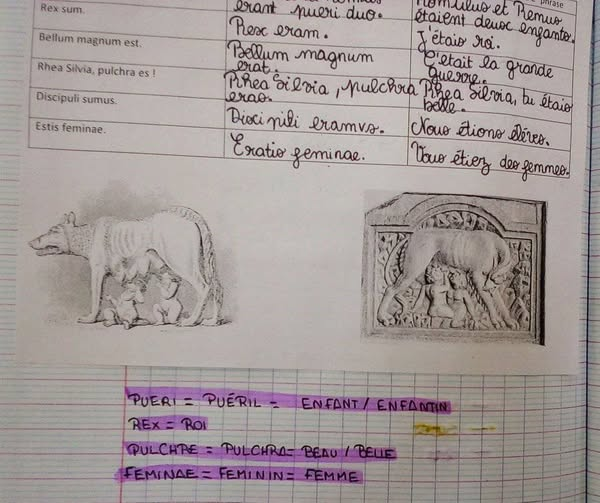 phrase
Romulus et Remus
Rex sum.
erant pueri duo.
étaient deux enfants.
Rex eram.
J'étais roi.
Bellum magnum est.
Bellum magnum
erat.
C'était la grande
guerre.
Rhea Silvia, pulchra es !
Rhea Silvia, pulchra
eras.
Rhea Silvia, tu étais
belle.
Discipuli sumus.
Discipuli eramus.
Nous étions élèves.
Estis feminae.
Eratis feminae.
Vous étiez des femmes.
PUERI = PUÉRIL = ENFANT / ENFANTIN
REX = ROI
PULCHRE = PULCHRA = BEAU / BELLE
FEMINAE = FEMININ = FEMME